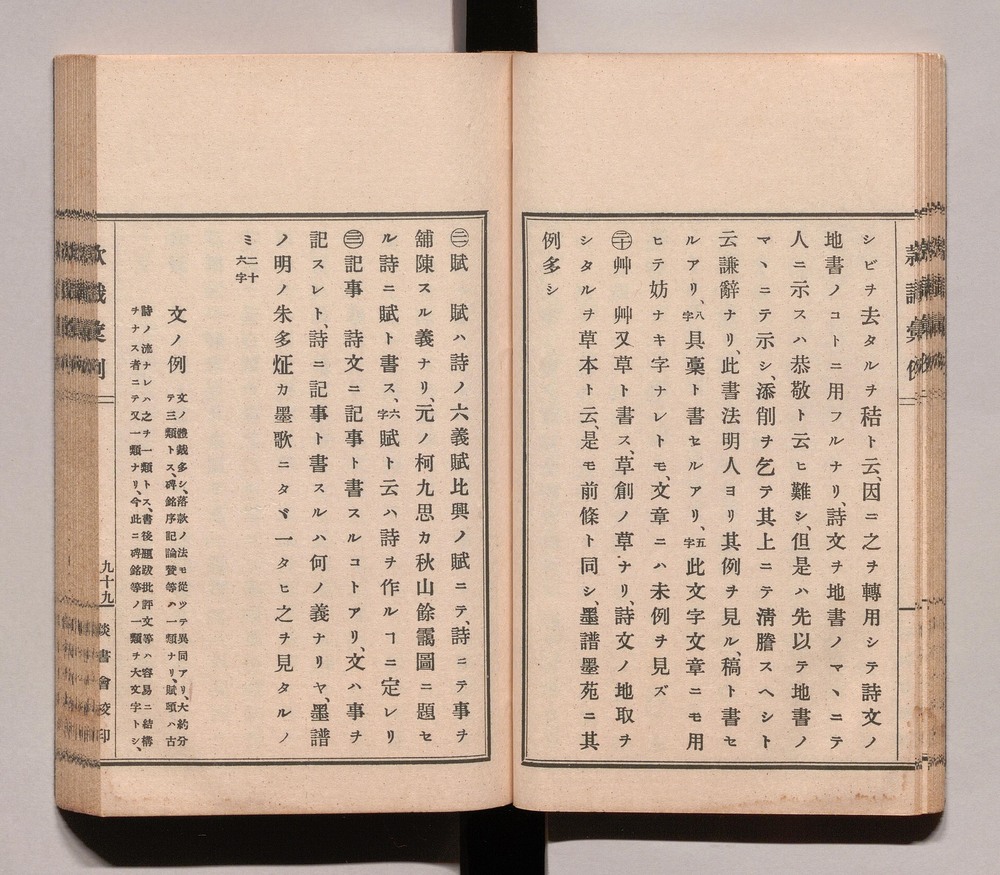 シビヲ去タルヲ秸ト云、因ニ之ヲ轉用シテ詩文ノ
地書ノコトニ用フルナリ、詩文ヲ地書ノマヽニテ
人ニ示スハ恭敬ト云ヒ難シ、但是ハ先以テ地書ノ
マヽニテ示シ、添削ヲ乞テ其上ニテ淸謄スヘシト
云謙辭ナリ、此書法明人ヨリ其例ヲ見ル、稿ト書セ
ルアリ、八字具稾ト書セルアリ、五字此文字文章ニモ用
ヒテ妨ナキ字ナレトモ、文章ニハ未例ヲ見ズ
㊁艸 艸又草ト書ス、草創ノ草ナリ、詩文ノ地取ヲ
シタルヲ草本ト云、是モ前條ト同シ、墨譜墨苑ニ其
例多シ
賦 賦ハ詩ノ六義賦比興ノ賦ニテ、詩ニテ事ヲ
舖陳スル義ナリ、元ノ柯九思カ秋山餘靄圖ニ題セ
ル詩ニ賦ト書ス、六字賦ト云ハ詩ヲ作ルヿニ定レリ
記事 詩文ニ記事ト書スルコトアリ、文ハ事ヲ
記スレト、詩ニ記事ト書スルハ何ノ義ナリヤ、墨譜
ノ明ノ朱多炡カ墨歌ニタヾ一タヒ之ヲ見タルノ
ミ二十六字
文ノ例
文ノ體裁多シ、落款ノ法モ從ツテ異同アリ、大約分
テ三類トス、碑銘序記論贊等ハ一類ナリ、賦頌ハ古
詩ノ流ナレハ之ヲ一類トス、書後題跋批評文等ハ容易ニ結構
ヲナス者ニテ又一類ナリ、今此ニ碑銘等ノ一類ヲ大文字トシ、
九十九
談書會校印